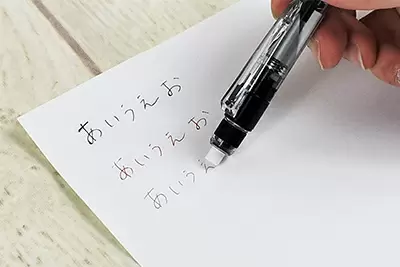 あいうえお
あいうえお
あいうえ